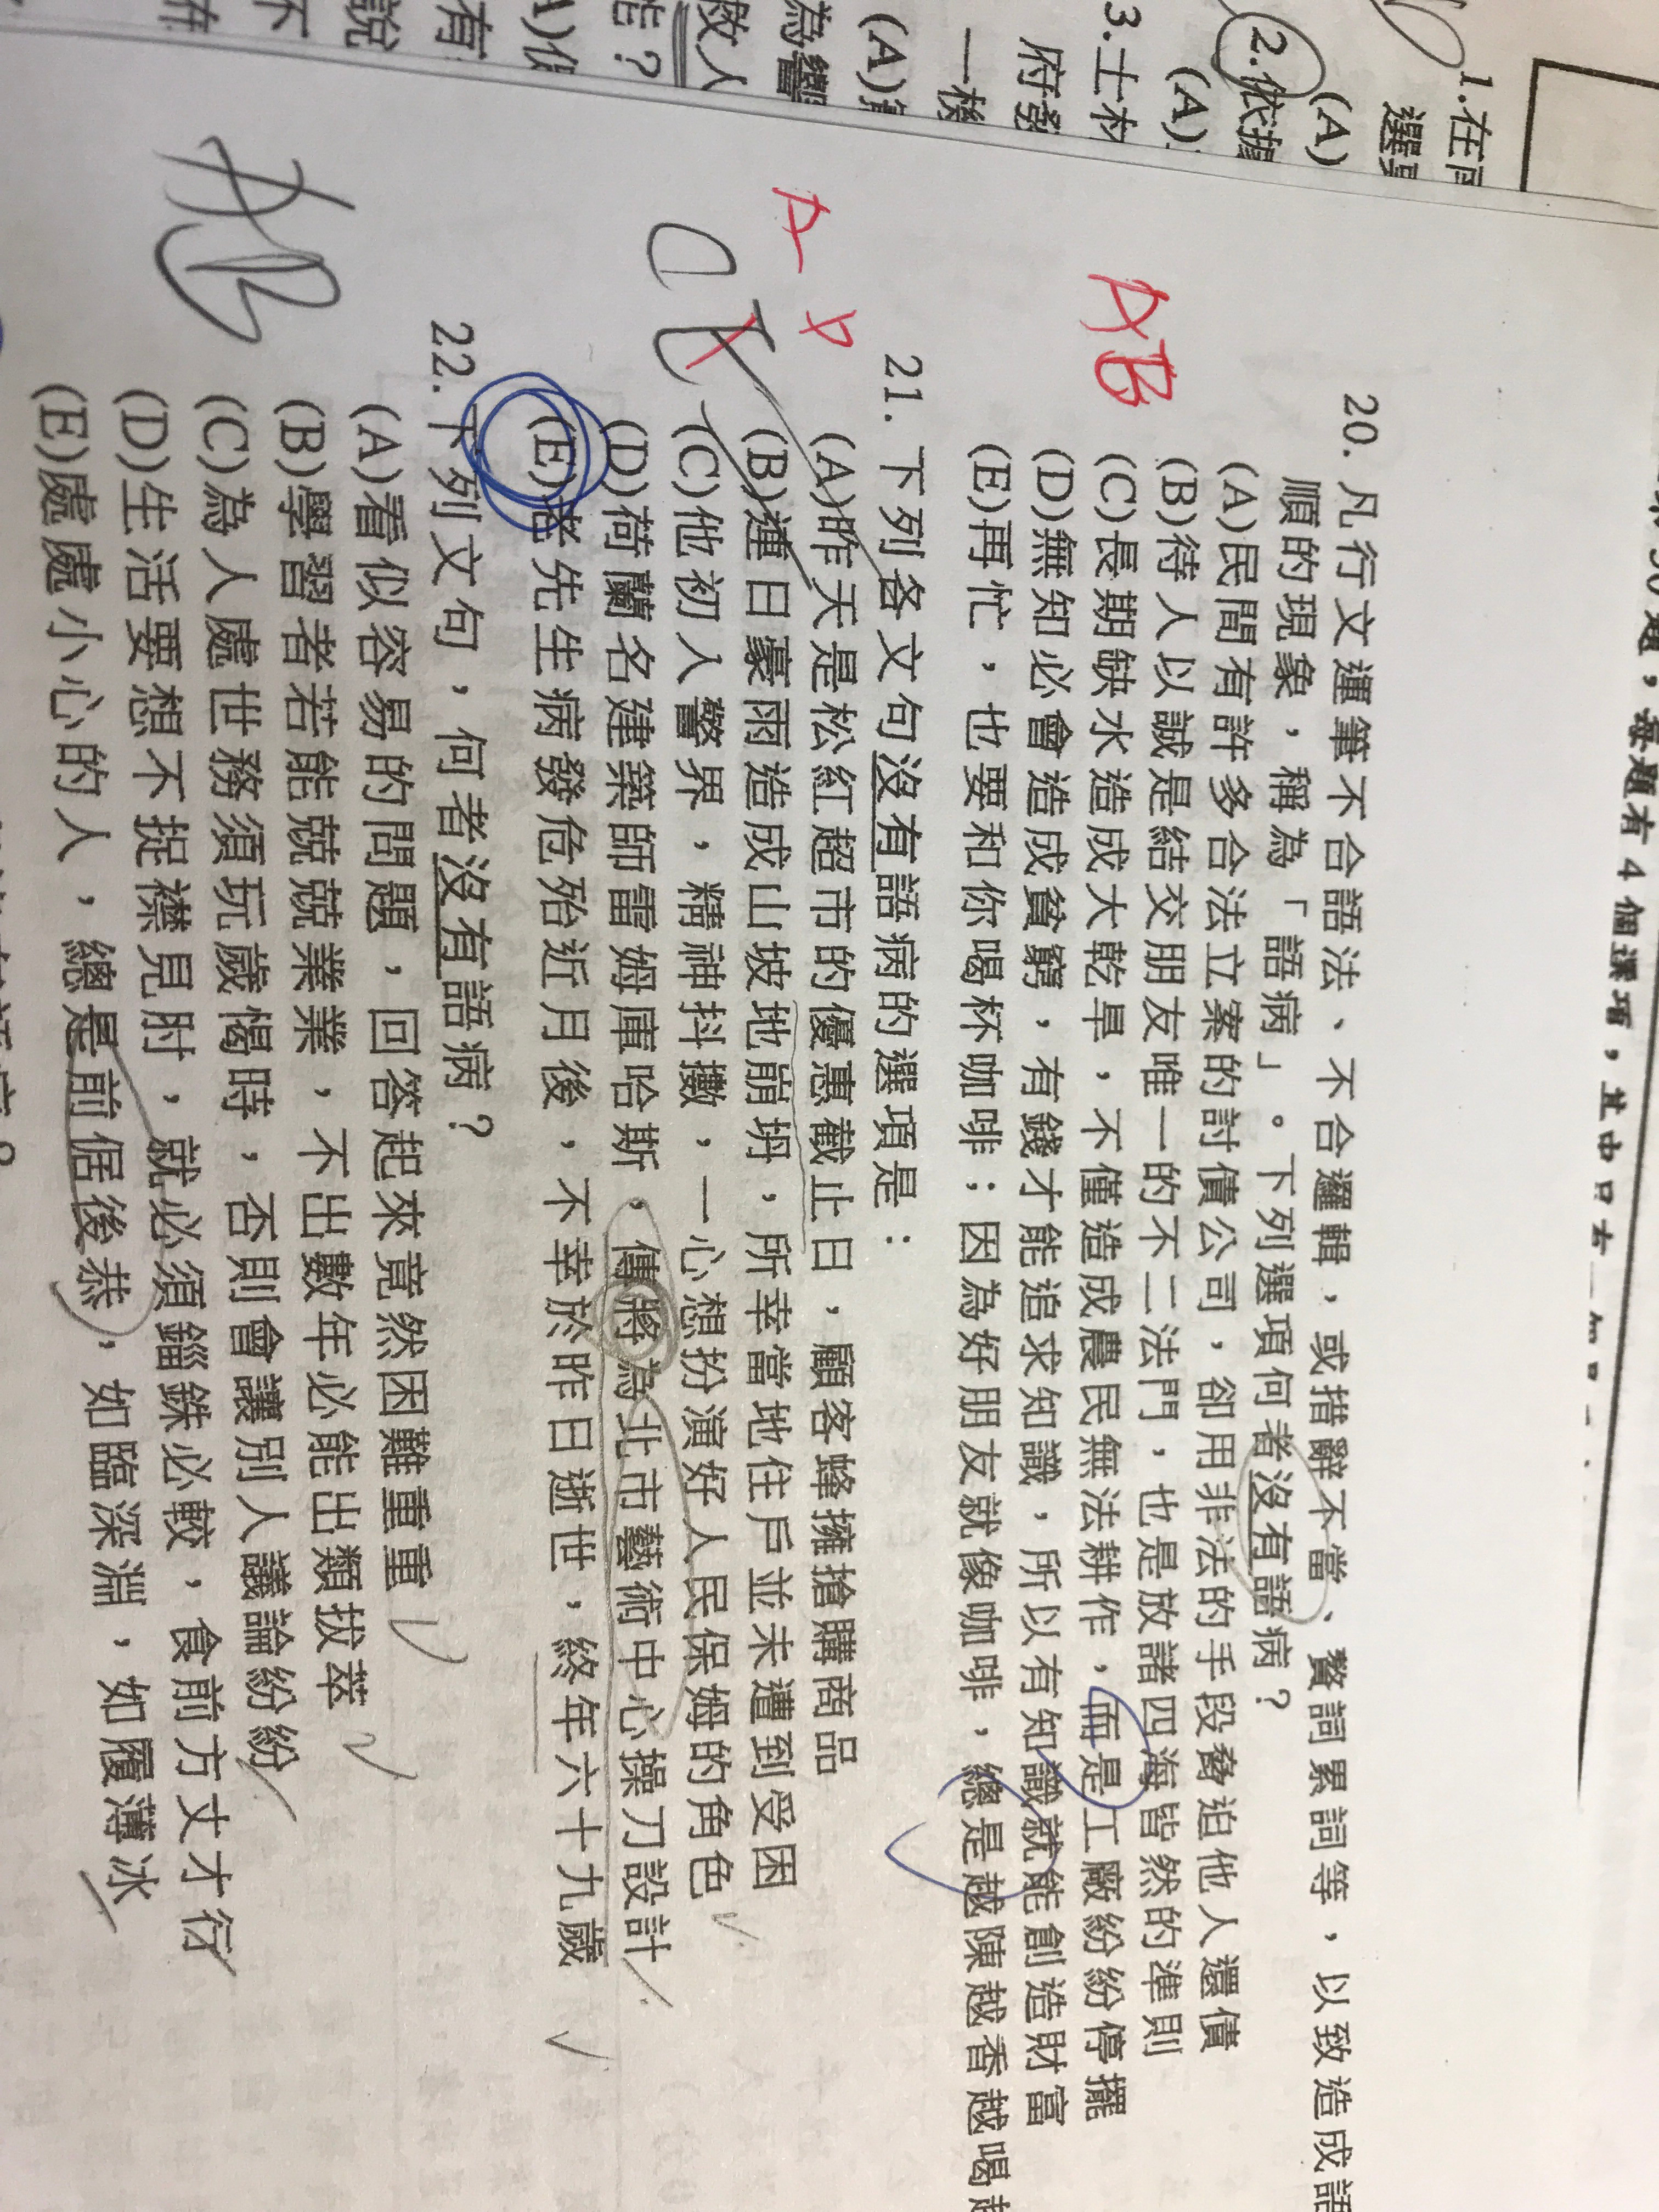 1.在同
選舉
(A)
2.依據
(A)
3.士林
府發
一機
(A)
為響
敵人
作?
A)促
有
說
不
50題,每題有4個選項,其中只有
20.凡行文運筆不合語法、不合邏輯,或措辭不當、贅詞累詞等,以致造成語
順的現象,稱為「語病」。下列選項何者沒有語病?
(A)民間有許多合法立案的討債公司,卻用非法的手段脅迫他人還債
(B)待人以誠是結交朋友唯一的不二法門,也是放諸四海皆然的準則
(C)長期缺水造成大乾旱,不僅造成農民無法耕作,而是工廠紛紛停擺
(D)無知必會造成貧窮,有錢才能追求知識,所以有知識就能創造財富
(E)再忙,也要和你喝杯咖啡;因為好朋友就像咖啡,總是越陳越香越喝越
AB
21.下列各文句沒有語病的選項是:
(A)昨天是松紅超市的優惠截止日,顧客蜂擁搶購商品
(B)連日豪雨造成山坡地崩坍,所幸當地住戶並未遭到受困
(C)他初入警界,精神抖擻,一心想扮演好人民保姆的角色
(D)荷蘭名建築師雷姆庫哈斯,傳將為北市藝術中心操刀設計
(E)老先生病發危殆近月後,不幸於昨日逝世,終年六十九歲
A
22.下列文句,何者沒有語病?
(A)看似容易的問題,回答起來竟然困難重重
(B)學習者若能兢兢業業,不出數年必能出類拔萃
(C)為人處世務須玩歲愒時,否則會讓別人議論紛紛
(D)生活要想不捉襟見肘,就必須錙銖必較,食前方丈才行
(E)處處小心的人,總是前倨後恭,如臨深淵,如履薄冰
AB